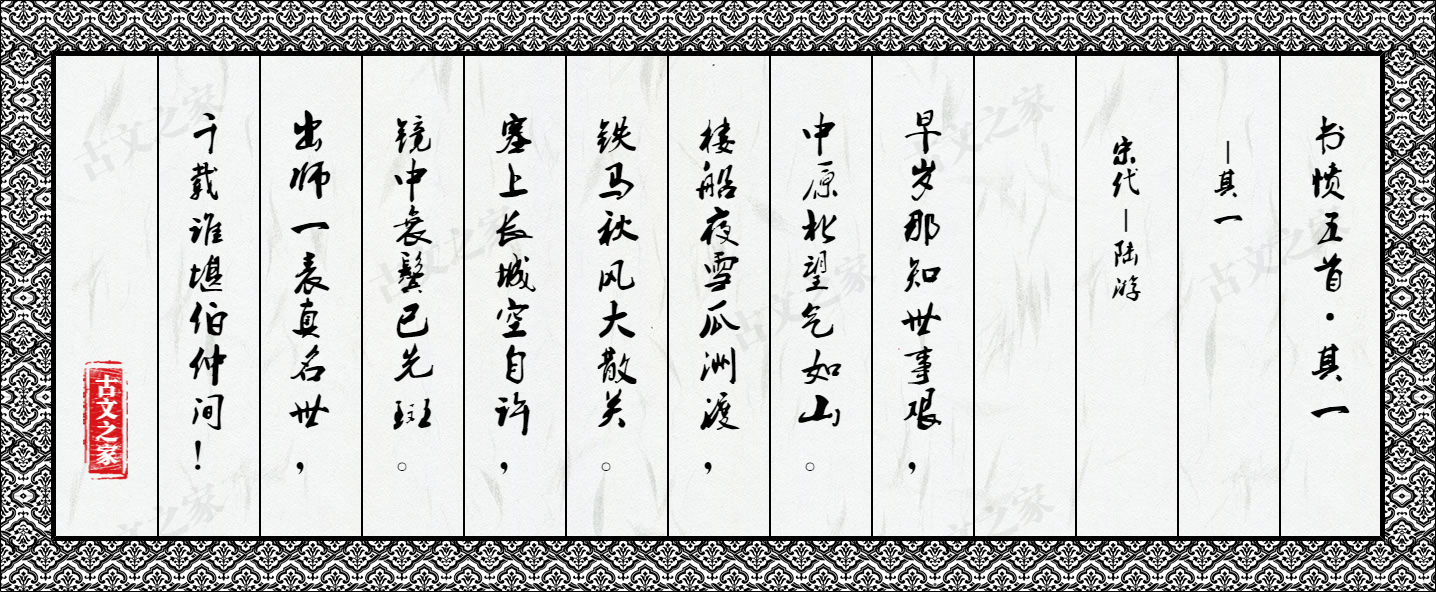 书愤五首·其一
—其一
宋代—陆游
早岁那知世事艰，
中原北望气如山。
楼船夜雪瓜洲渡，
铁马秋风大散关。
塞上长城空自许，
镜中衰鬓已先斑。
出师一表真名世，
千载谁堪伯仲间！
古文之家